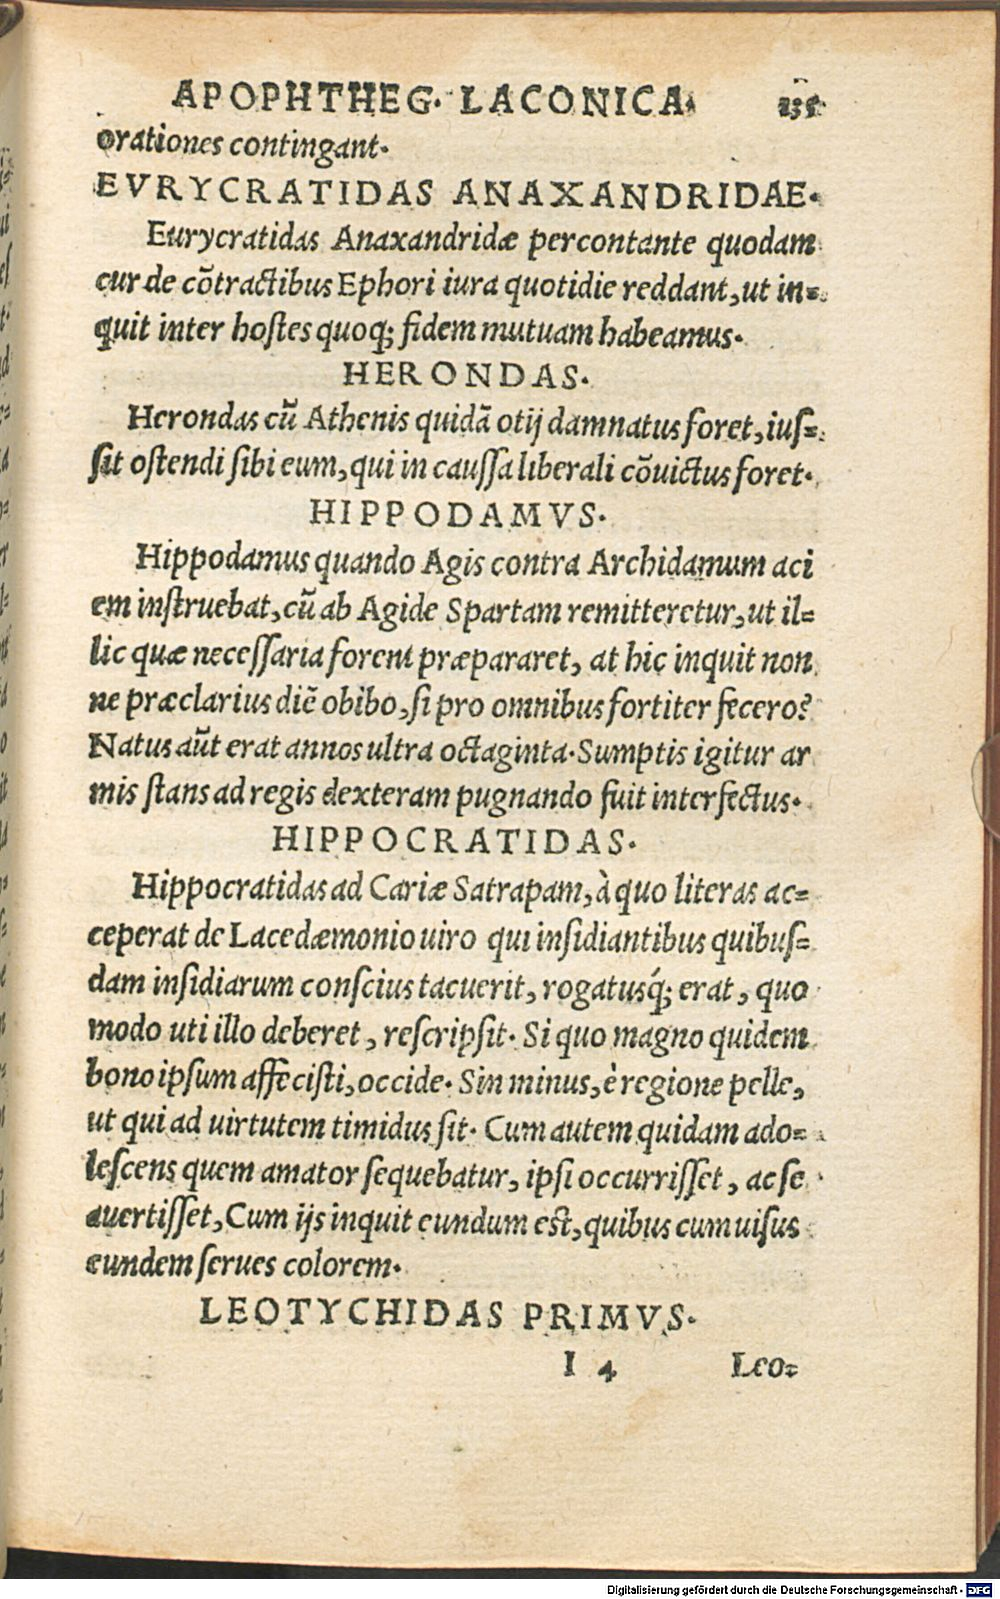 APOPHTHEG. LACONICA. 135
orationes contingant.
EVRYCRATIDAS ANAXANDRIDAE.
Eurycratidas Anaxandridæ percontante quodam
cur de cõtractibus Ephori iura quotidie reddant, ut in=
quit inter hostes quoq; fidem mutuam habeamus.
HERONDAS.
Herondas cũ Athenis quidã otij damnatus foret, ius=
sit ostendi sibi eum, qui in caussa liberali cõuictus foret.
HIPPODAMVS.
Hippodamus quando Agis contra Archidamum aci
em instruebat, cũ ab Agide Spartam remitteretur, ut il=
lic quæ necessaria forent præpararet, at hic inquit non
ne præclarius diẽ obibo, si pro omnibus fortiter fecero?
Natus aũt erat annos ultra octaginta. Sumptis igitur ar
mis stans ad regis dexteram pugnando fuit interfectus.
HIPPOCRATIDAS.
Hippocratidas ad Cariæ Satrapam, à quo literas ac=
ceperat de Lacedæmonio uiro qui insidiantibus quibus=
dam insidiarum conscius tacuerit, rogatusq́; erat, quo
modo uti illo deberet, rescripsit. Si quo magno quidem
bono ipsum affecisti, occide. Sin minus, è regione pelle,
ut qui ad uirtutem timidus sit. Cum autem quidam ado=
lescens quem amator sequebatur, ipsi occurrisset, ac se
auertisset, Cum ijs inquit eundum est, quibus cum uisus
eundem serues colorem.
LEOTYCHIDAS PRIMVS.
I 4 Leo=
Digitalisierung gefördert durch die Deutsche Forschungsgemeinschaft - DFG